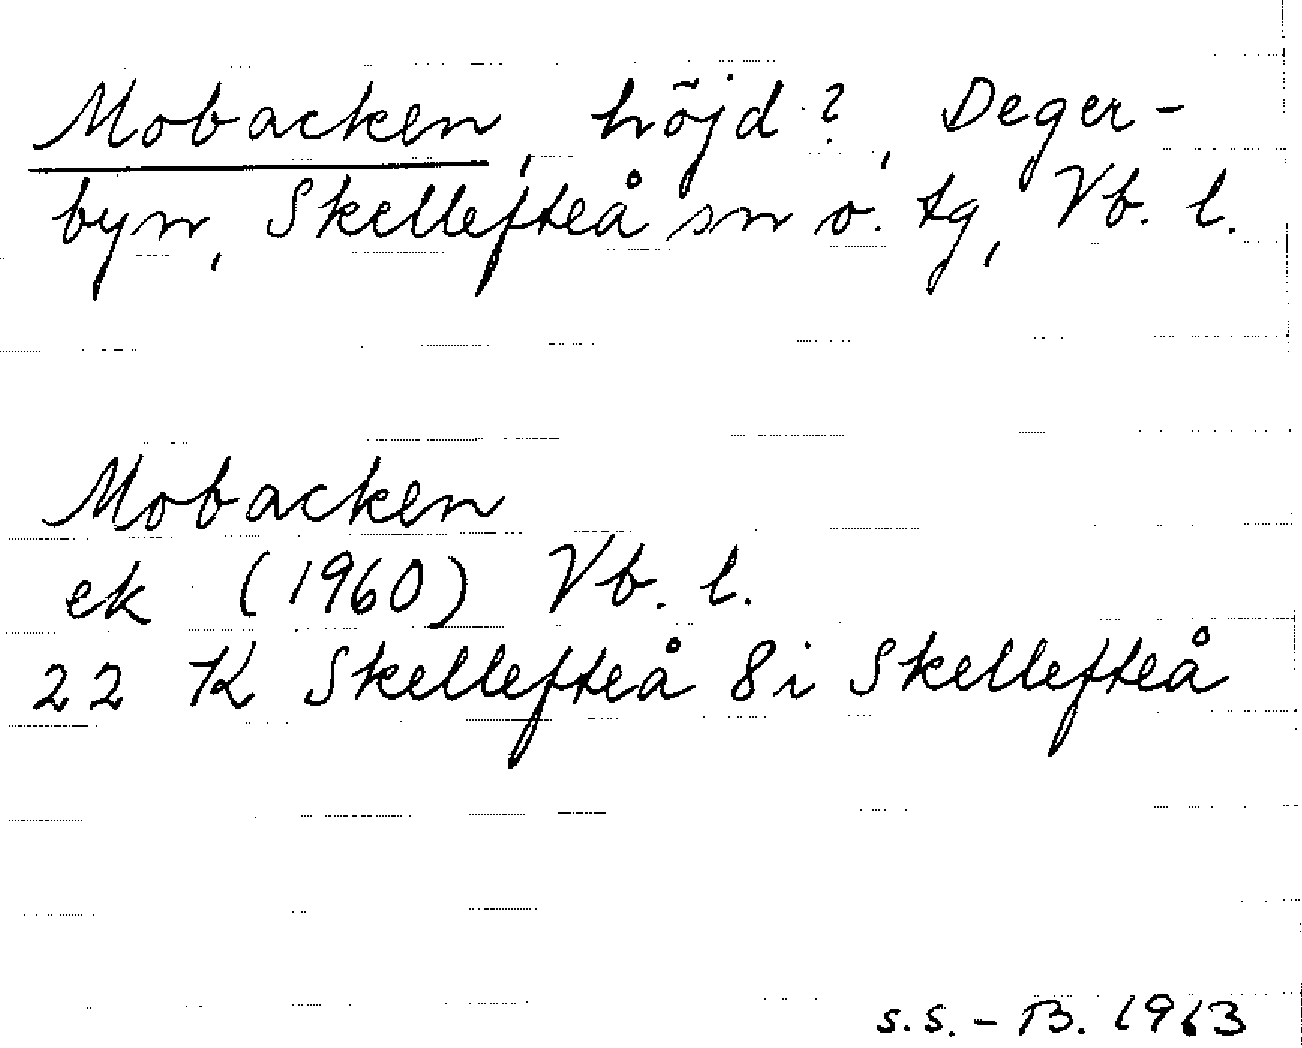 Mobacken, höjd?, Deger-
byn, Skellefteå sn o. tg, Vb. l.
Mobacken
ek (1960) Vb. l.
22 K Skellefteå 8i Skellefteå
s.s. - B. 1963